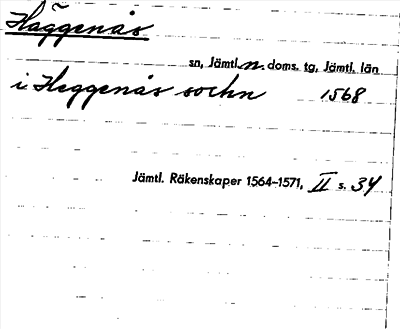 Häggenås
sn, Jämtl. n. doms. tg, Jämtl. län
i Heggenås sochn 1568
Jämtl. Räkenskaper 1564-1571, II s. 34